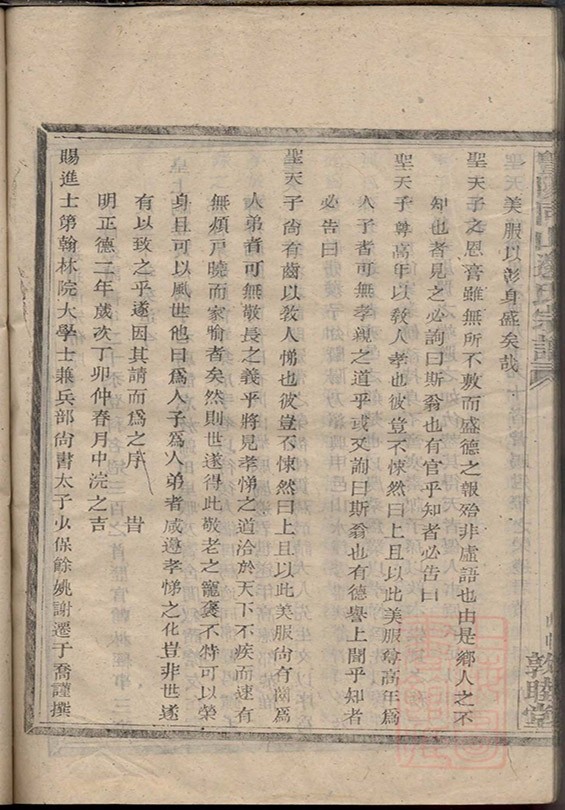 聖天美服以彰身盛矣哉
聖天子之恩膏雖無所不敷而盛德之報殆非虛語也由是鄉人之不
知也者見之必詢曰斯翁也有官乎知者必告曰
聖天子尊高年以教人孝也彼豈不悚然曰上且以此美服尊高年為
人子者可無孝親之道乎或又詢曰斯翁也有德譽上聞乎知者
必告曰
聖天子尚有齒以教人悌也彼豈不悚然曰上且以此美服尚有齒爲
人弟者可無敬長之義乎將見孝悌之道洽於天下不疾而速有
無煩戸曉而家喻者矣然則世遂得此敬老之寵褒不特可以榮
身且可以風世他曰爲人子爲人弟者咸遵孝悌之化豈非世遂
有以致之乎遂因其請而爲之序 旹
明正德二年歲次丁卯仲春月中浣之吉
賜進士第翰林院大學士兼兵部尚書太子少保餘姚謝遷于喬謹撰
氏宗譜
敦睦堂